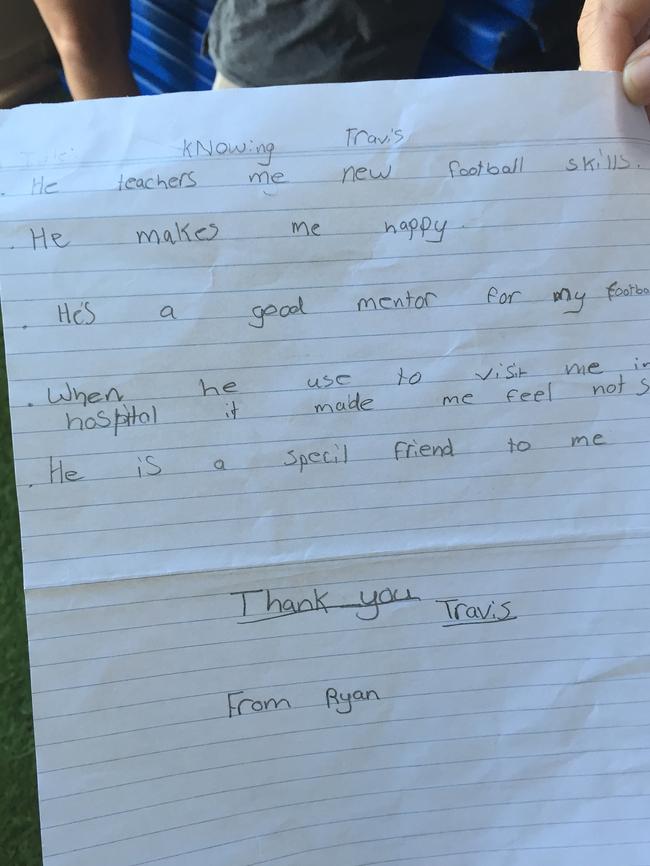 KNowing Travis
. He teachers me new football skills.
. He makes me happy.
. He's a good mentor for my footba
. When he use to visit me in
hospital it made me feel not s
. He is a specil friend to me
Thank you Travis
From Ryan